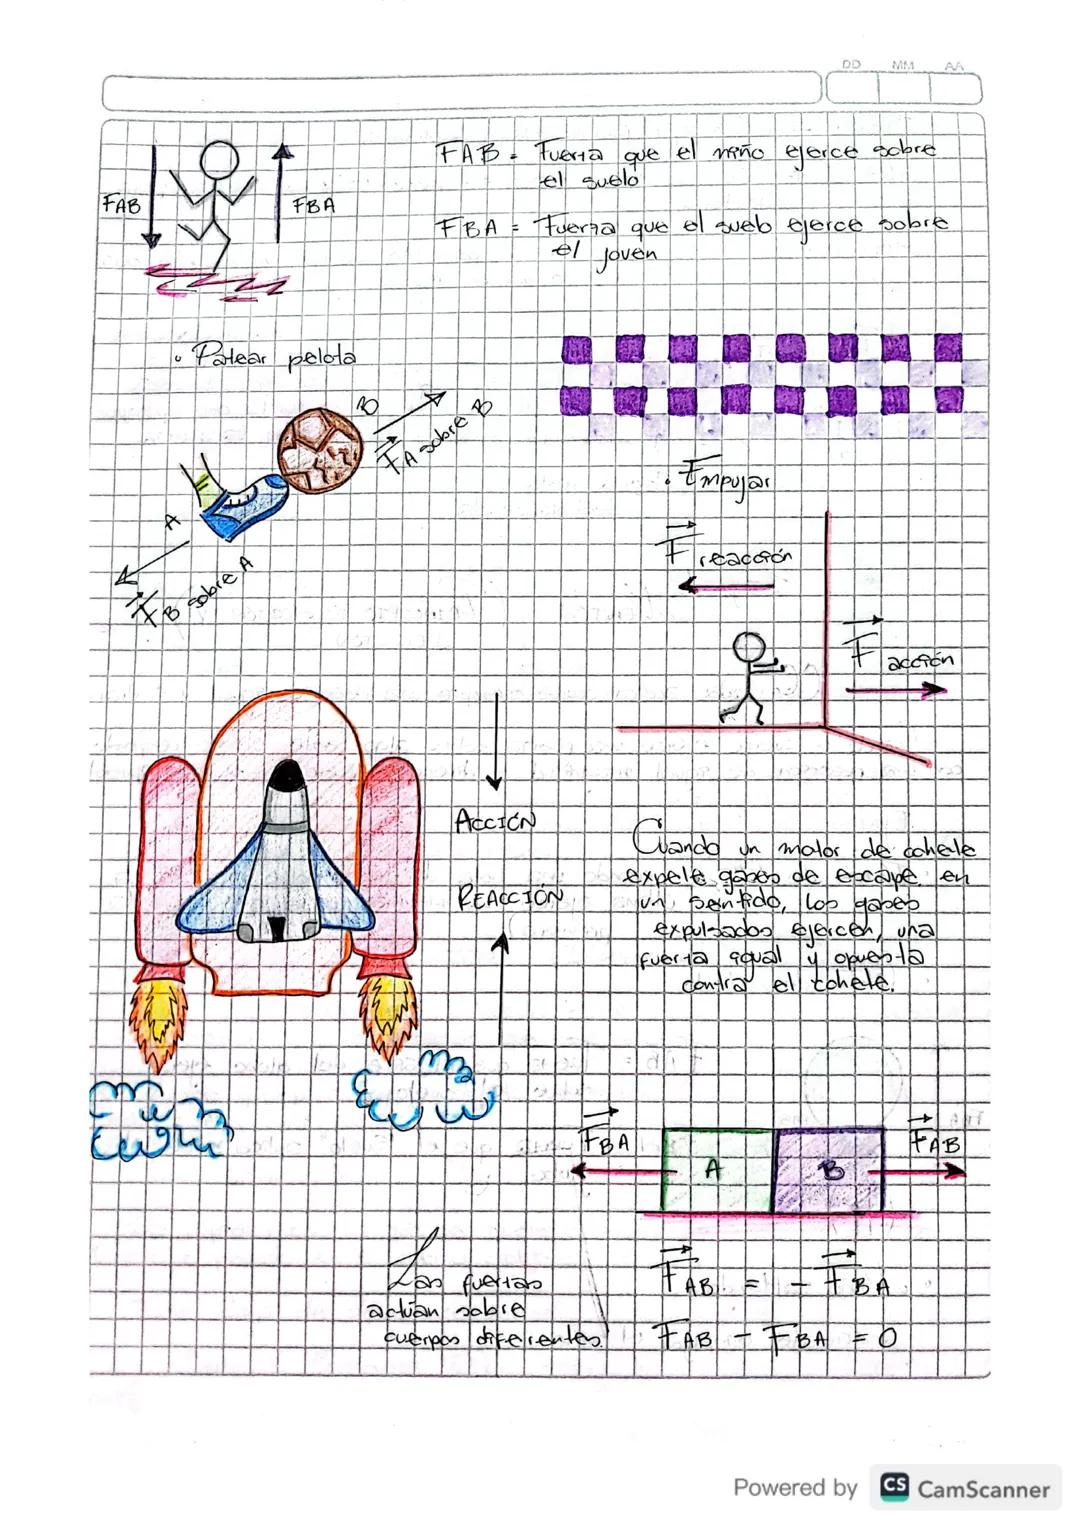 DD MM AA
FAB = Fuerza que el niño ejerce sobre
el suelo
FAB
FBA
FBA = Fuerza que el suelo ejerce sobre
el joven
• Patear pelota
B
F A sobre B
A
F B sobre A
• Empujar
F reacción
F acción
ACCIÓN
REACCIÓN
Cuando un motor de cohete
expele gases de escape en
un sentido, los gases
expulsados ejercen, una
fuerza igual y opuesta
contra el cohete.
FBA
A
B
FAB
Las fuerzas
actúan sobre
cuerpos diferentes.
FAB = - FBA
FAB - FBA = 0
Powered by CS CamScanner